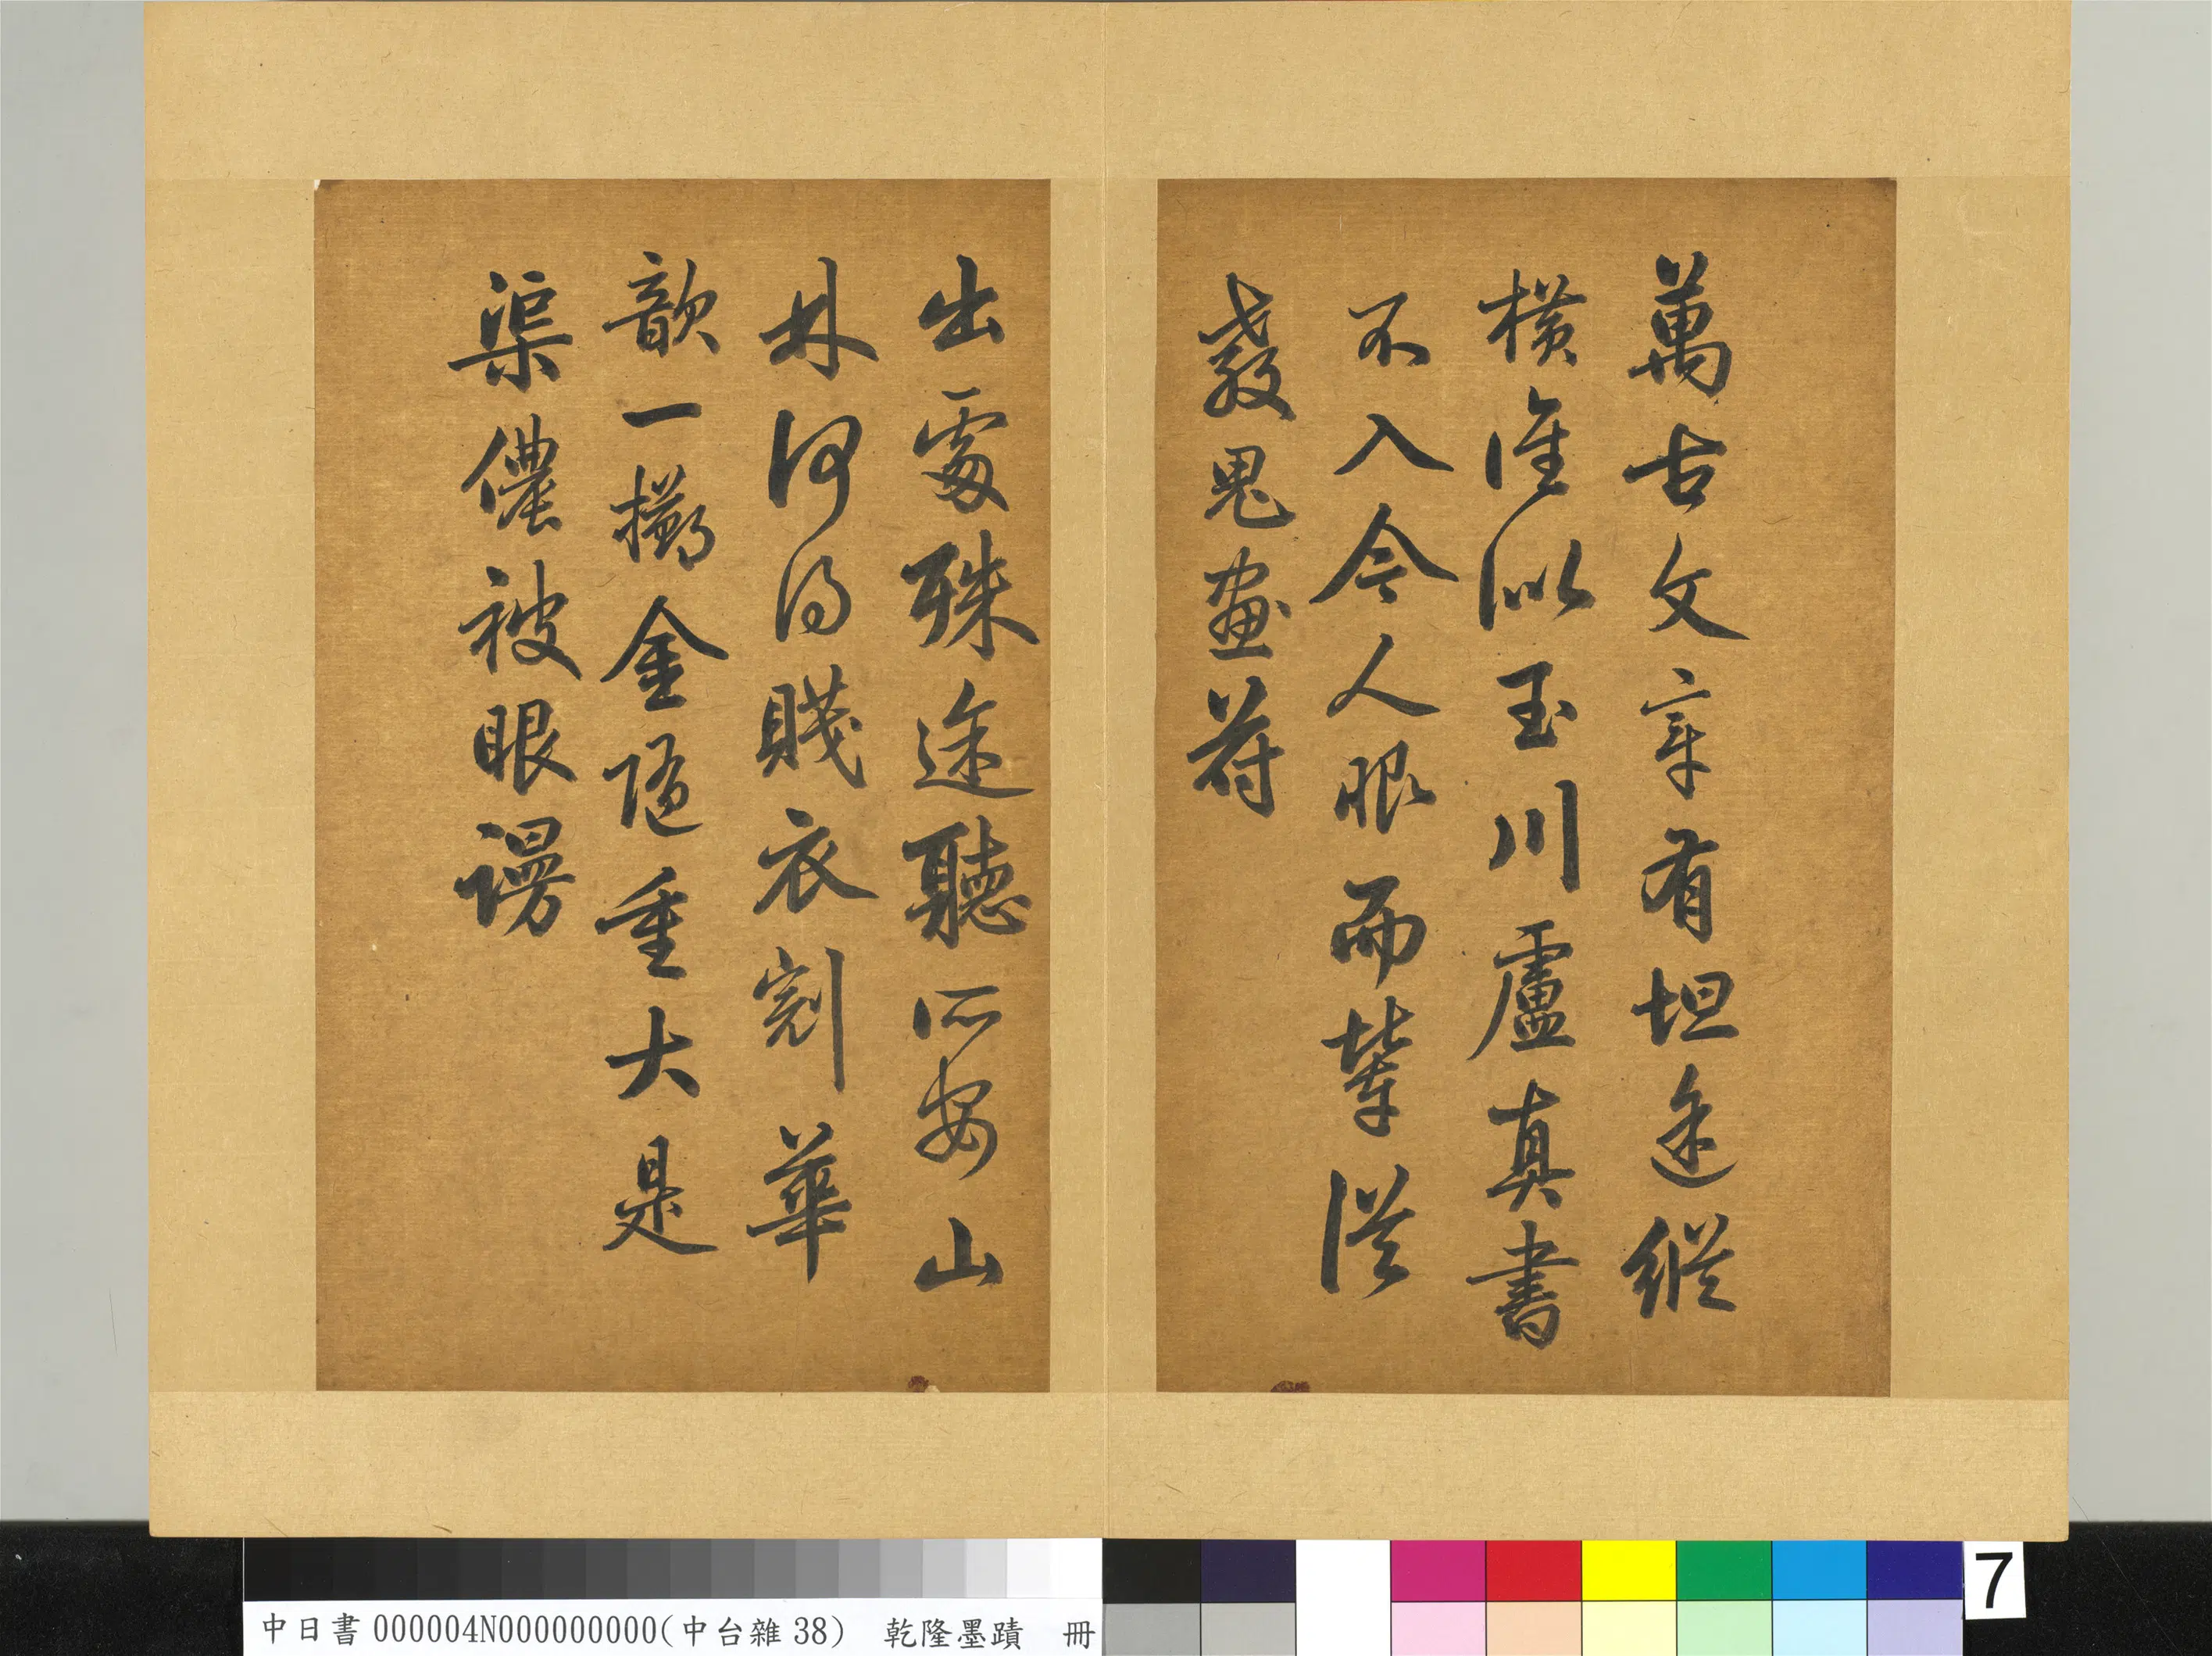 萬古文章有坦途縱
橫誰似玉川盧真書
不入今人眼而輩從
教鬼畫符
出處殊途聽所安山
林何得賤衣冠華
歆一擲金隨重大是
渠儂被眼謾
中日書000004N000000000(中台雜38) 乾隆墨蹟 冊
7